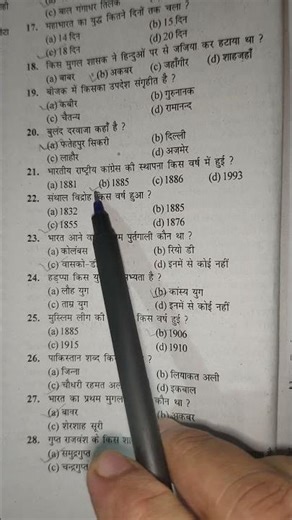 (c) बाल गंगाधर तिलक
17. महाभारत का युद्ध कितने दिनों तक चला ?
(a) 14 दिन (b) 15 दिन
(c) 18 दिन (d) 20 दिन
18. किस मुगल शासक ने हिन्दुओं पर से जजिया कर हटाया था ?
(a) बाबर (b) अकबर (c) जहाँगीर (d) शाहजहाँ
19. बीजक में किसका उपदेश संगृहीत है ?
(a) कबीर (b) गुरुनानक
(c) चैतन्य (d) रामानन्द
20. बुलंद दरवाजा कहाँ है ?
(a) फतेहपुर सिकरी (b) दिल्ली
(c) लाहौर (d) अजमेर
21. भारतीय राष्ट्रीय कांग्रेस की स्थापना किस वर्ष में हुई ?
(a) 1881 (b) 1885 (c) 1886 (d) 1993
22. संथाल विद्रोह किस वर्ष हुआ ?
(a) 1832 (b) 1885
(c) 1855 (d) 1876
23. भारत आने पुर्तगाली कौन था ?
(a) कोलंबस (b) रियो डी
(c) वास्को-डी (d) इनमें से कोई नहीं
24. हड़प्पा किस है ?
(a) लौह युग (b) कांस्य युग
(c) ताम्र युग (d) इनमें से कोई नहीं
25. मुस्लिम लीग की किस वर्ष हुई ?
(a) 1885 (b) 1906
(c) 1915 (d) 1910
26. पाकिस्तान शब्द ?
(a) जिन्ना (b) लियाकत अली
(c) चौधरी रहमत (d) इकबाल
27. भारत का प्रथम मुगल कौन था ?
(a) बाबर (b) अकबर
(c) शेरशाह सूरी
28. गुप्त राजवंश के किस
(a) समुद्रगुप्त
(c) चन्द्रगुप्त